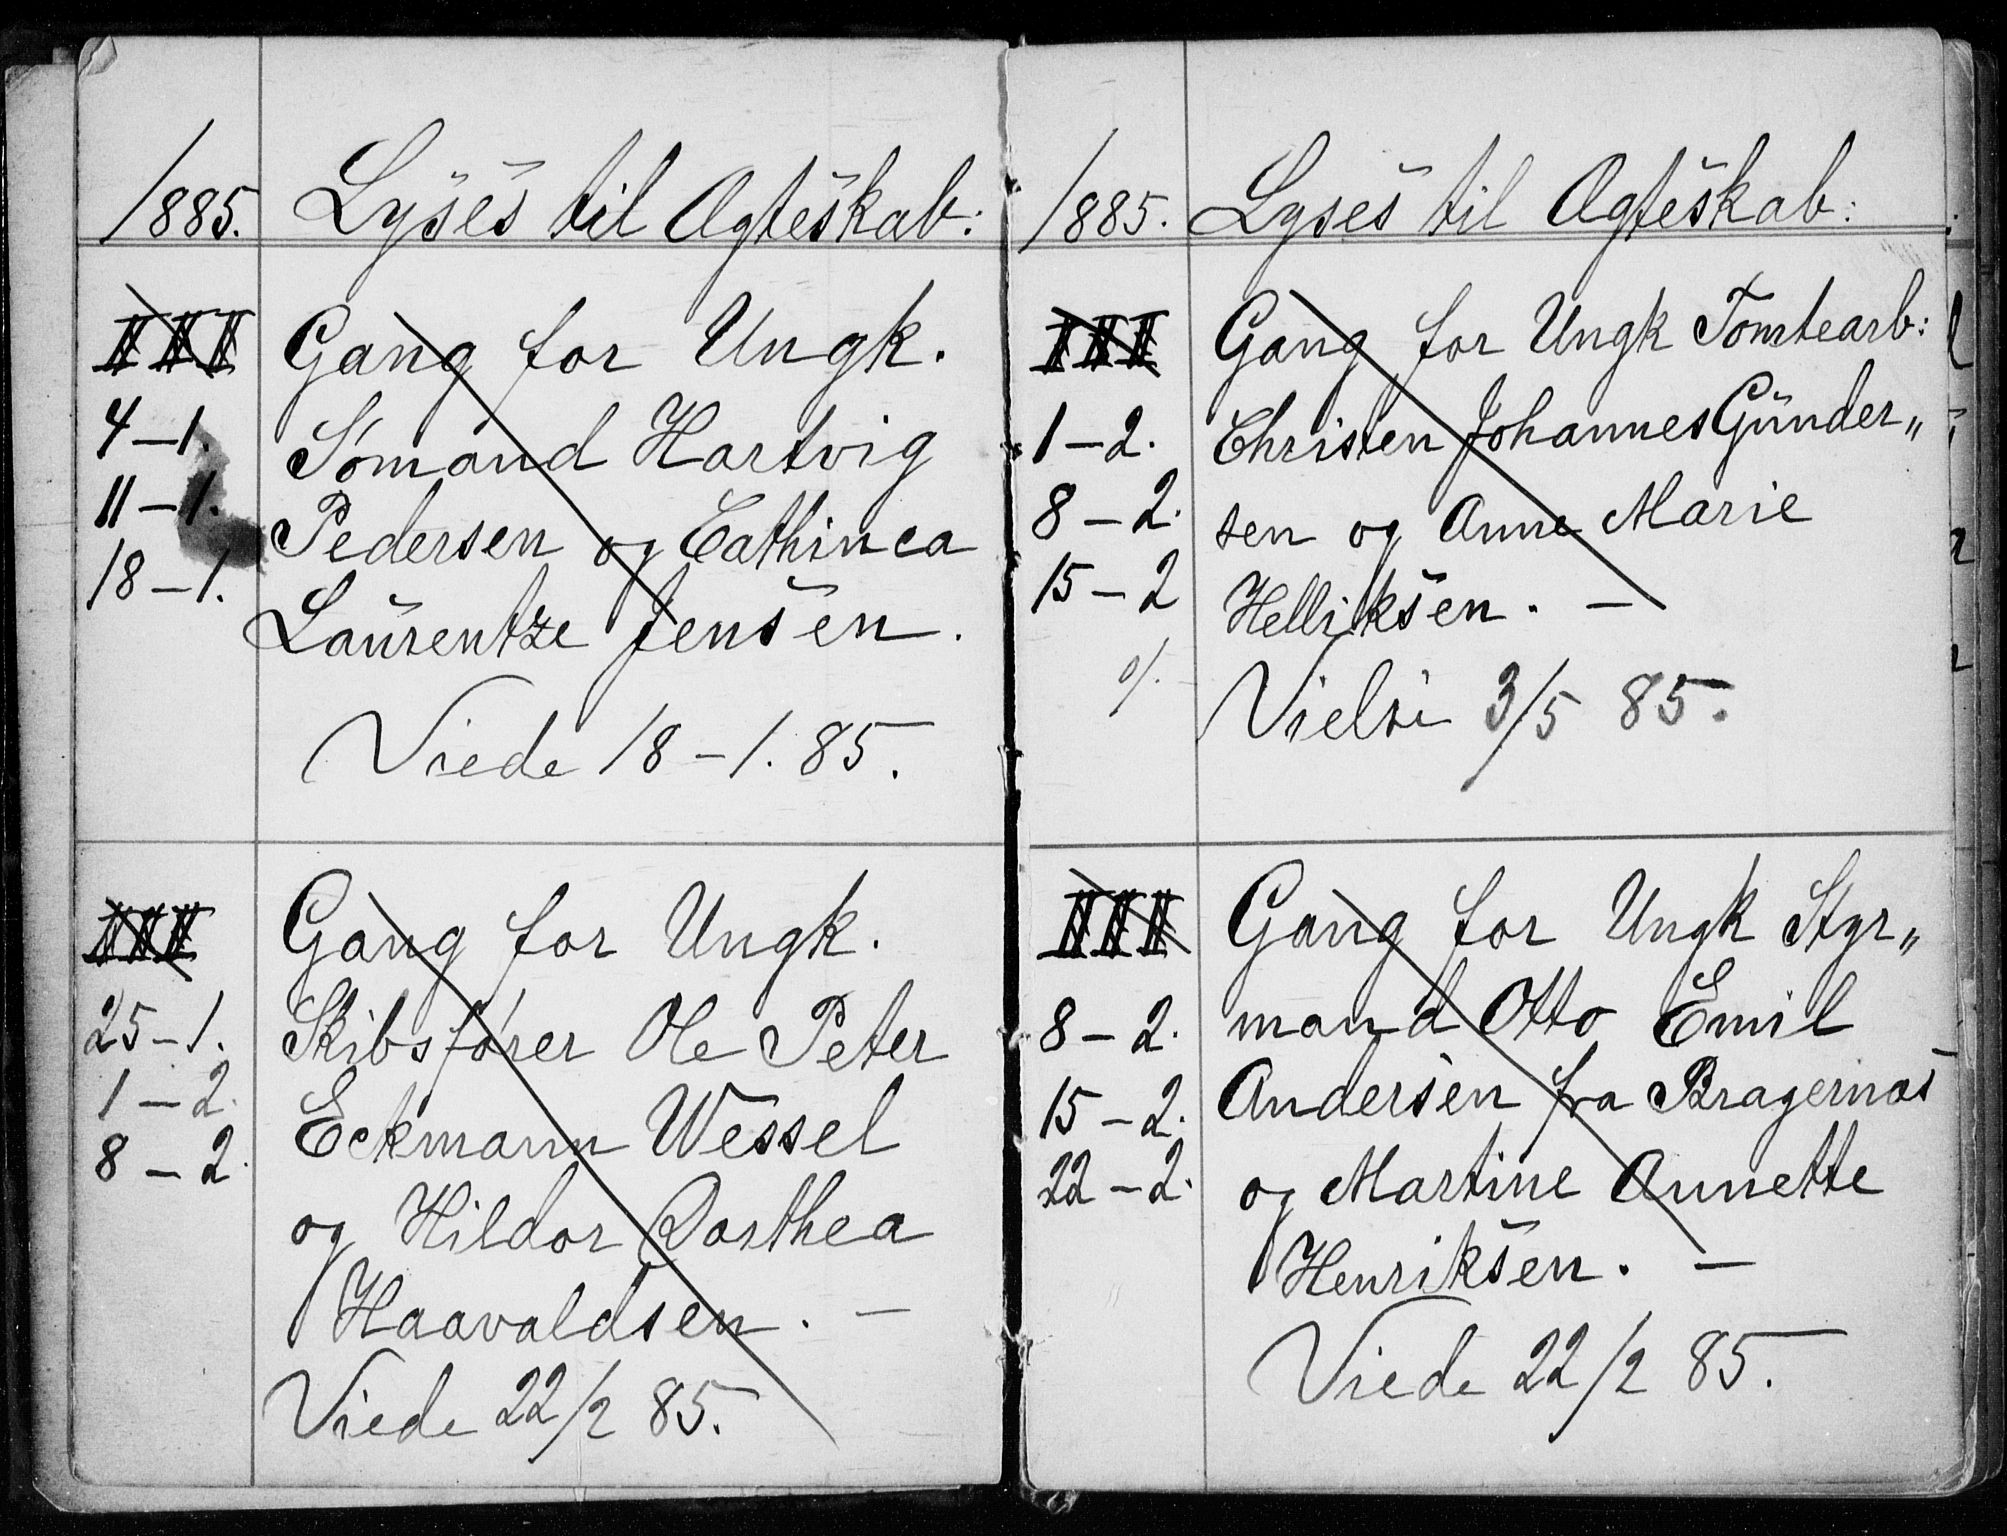 1885. Lyses til Ægteskab:
III Gang for Ungk.
4-1. Sømand Hartvig
11-1. Pedersen og Cathinca
18-1. Laurentze Jensen.
Viede 18-1. 85.
III Gang for Ungk.
25-1. Skibsfører Ole Peter
1-2. Eckmann Wessel
8-2. og Hildor Dorthea
Haavaldsen. —
Viede 22/2 85.
1885. Lyses til Ægteskab:
III Gang for Ungk Tomtearb:
1-2. Christen Johannes Gunder„
8-2. sen og Anne Marie
15-2 Helliksen. —
Vielse 3/5 85.
III Gang for Ungk Styr„
8-2. mand Otto Emil
15-2. Andersen fra Bragernæs
22-2. og Martine Annette
Henriksen. —
Viede 22/2 85.